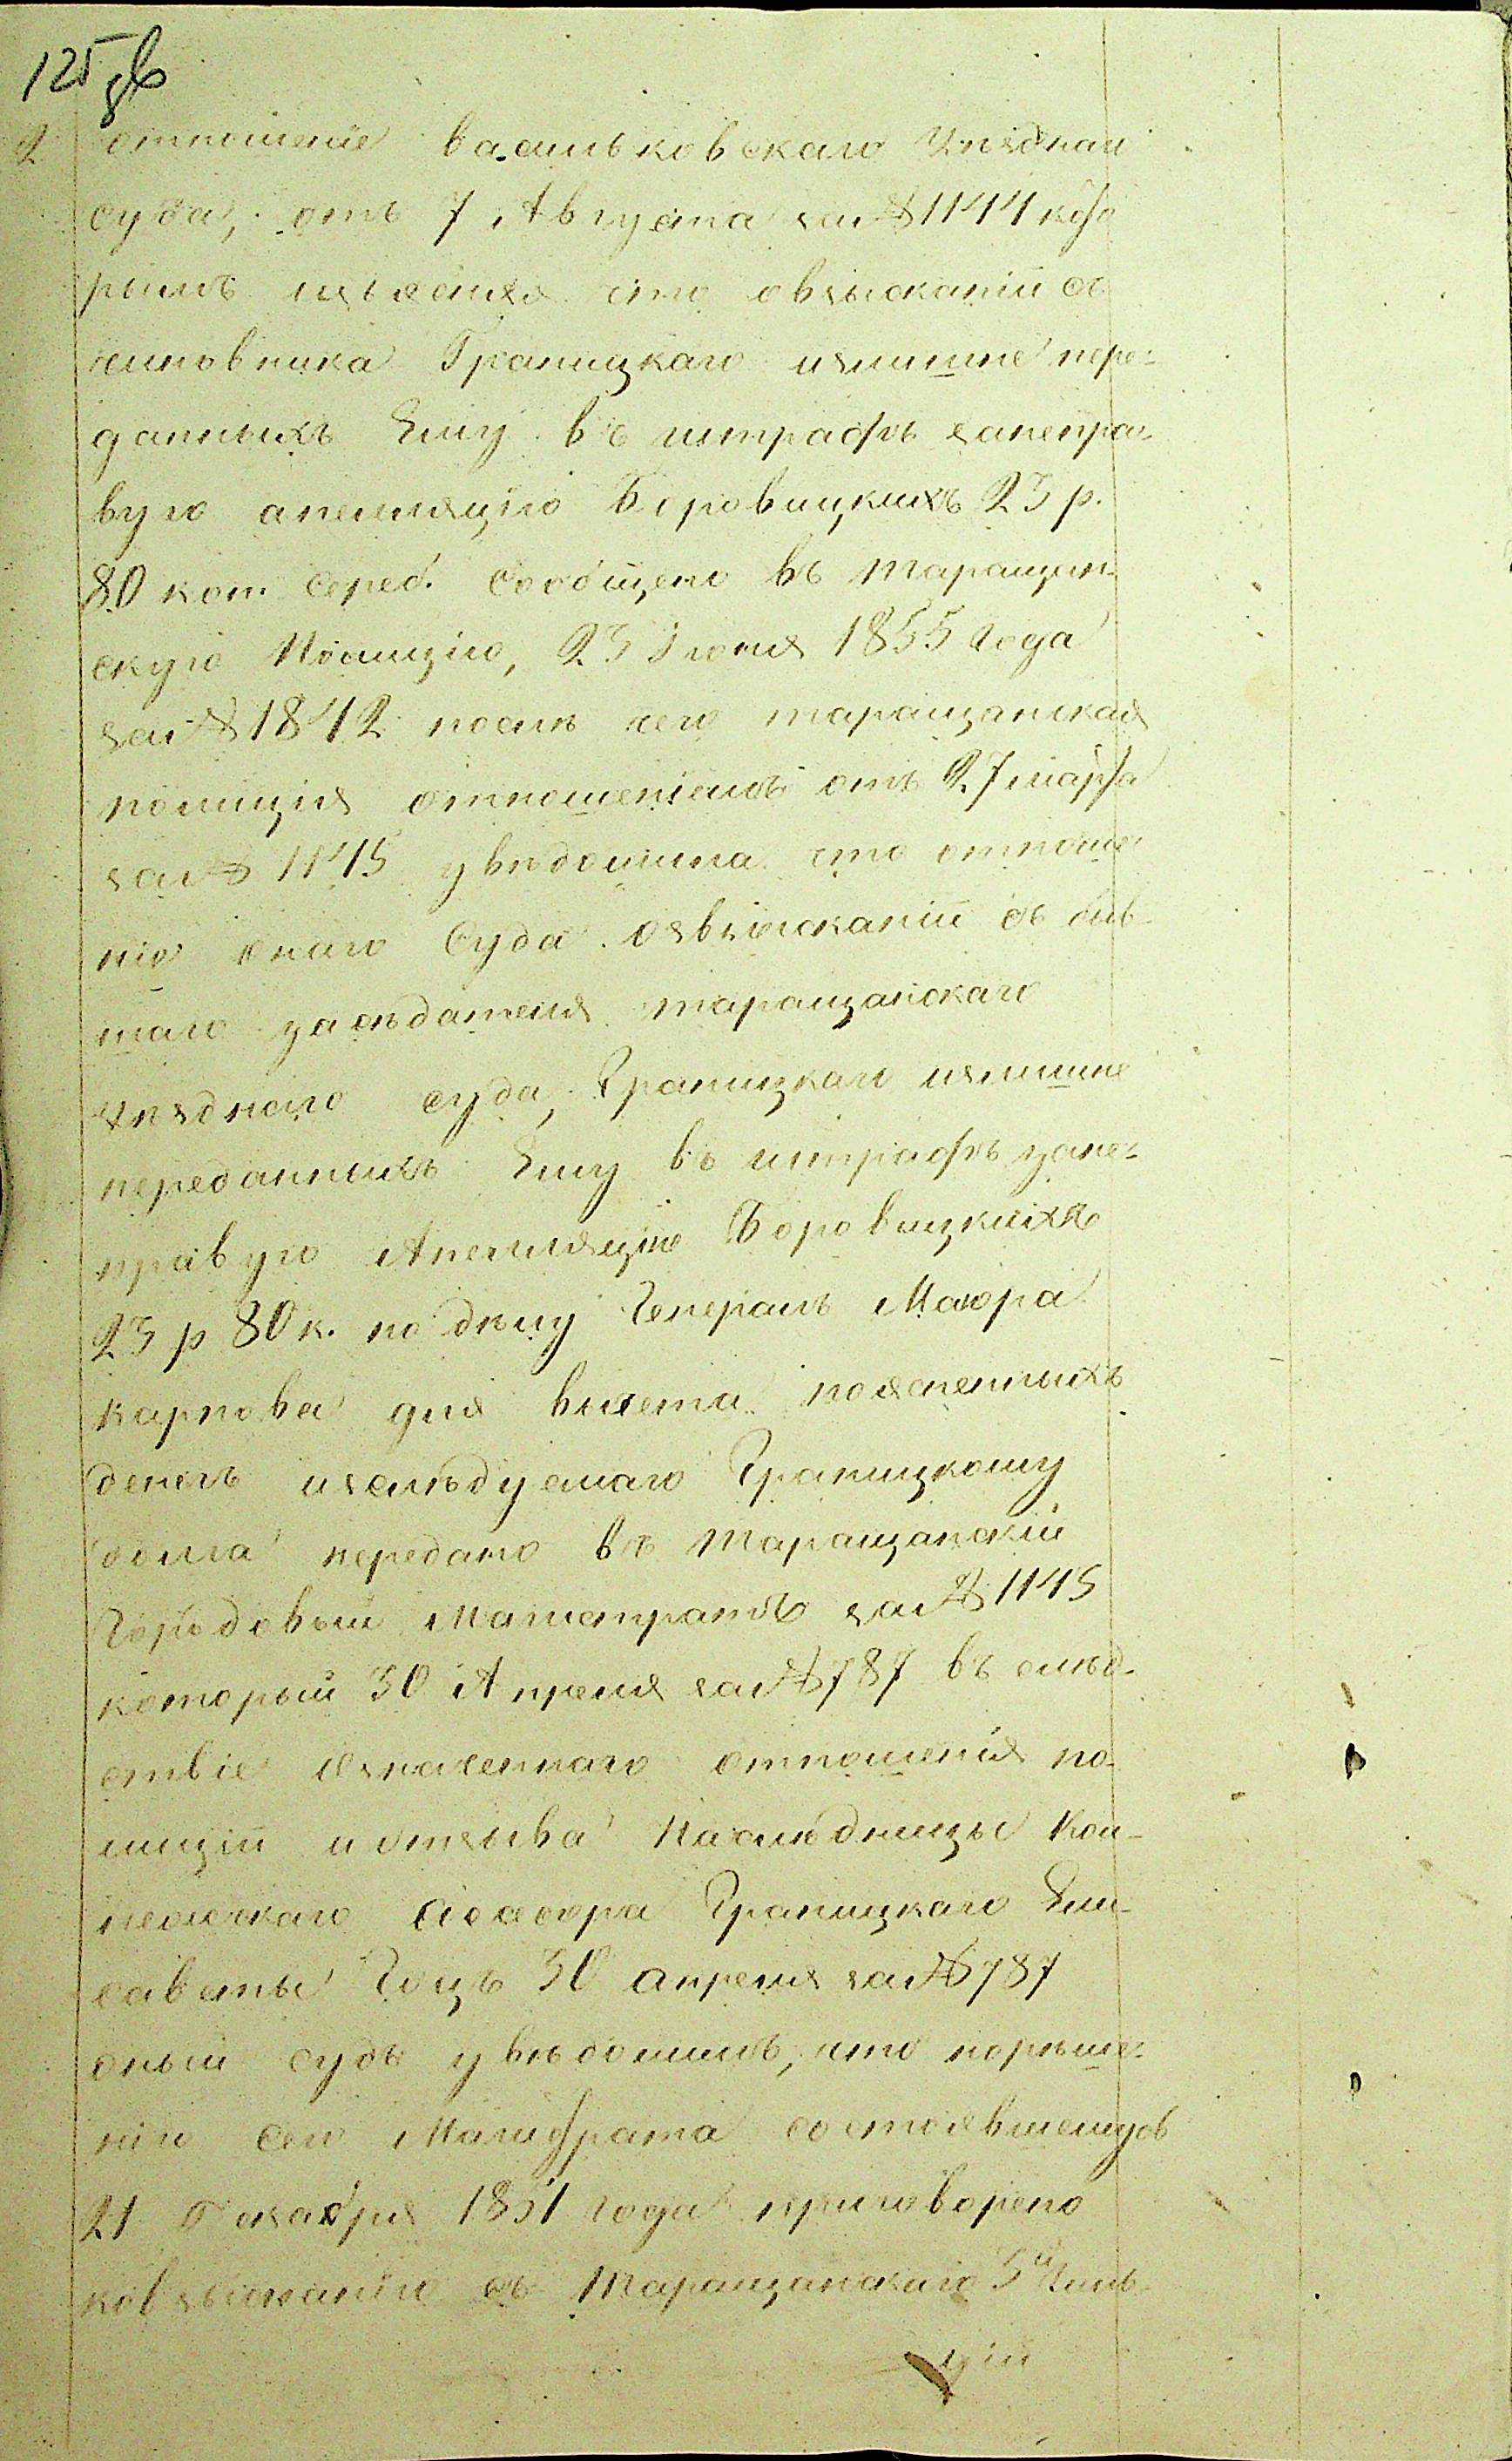 125 зв
2 отношеніе васильковскаго Уѣзднаго
суда, отъ 7 Августа за № 1144 кото
рымъ изъясняя что о взысканіи съ
чиновника Границкаго излишне пере-
данныхъ Ему въ штрафъ занепра-
вую апелляцію Боровицкихъ 23 р.
80 коп. сереб. сообщено въ таращан-
скую Полицію, 23 Іюня 1855 года
за № 1842 послѣ чего таращанская
полиція отношеніемъ отъ 27 марта
за № 1145 увѣдомила что отноше
ніе онаго Суда овзысканіи съ быв-
шаго засѣдателя таращанскаго
уѣзднаго суда, Границкаго излишне
переданныхъ Ему въ штрафъ зане-
правую Апелляцію Боровицкихъ
23 р 80 к. по дѣлу Генералъ Маіора
карпова для вычета поясненныхъ
денегъ изслѣдуемаго Границкому
долга передано въ таращанскій
Городовый Магистратъ за № 1145
который 30 Апреля за № 787 въ слѣд-
ствіе означеннаго отношенія по-
лиціи и отзыва Наслѣдницы Кол-
лежскаго Асессора Границкаго Ели-
саветы Гоцъ 30 апреля за № 787
оный судъ увѣдомилъ, что порѣше-
нію сего Магистрата состоявшемуся
21 Декабря 1851 года приговорено
ковзысканію съ Таращанскаго 3й Гиль-
діи